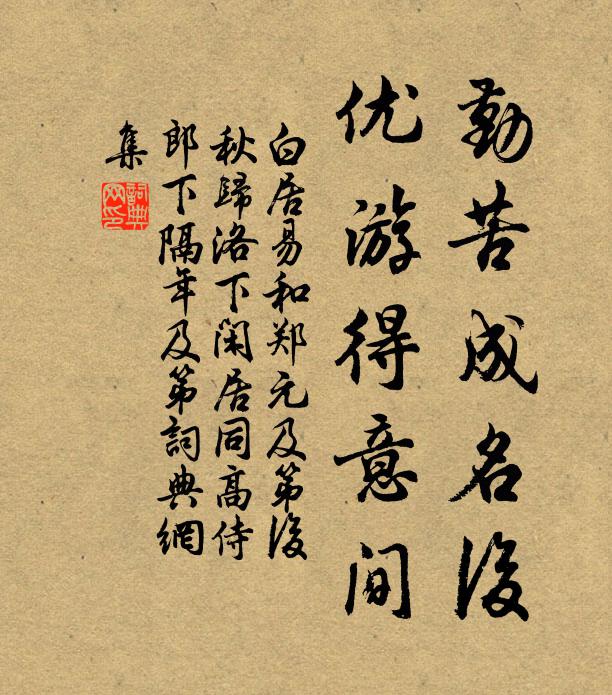 勤苦成名後
优游得意间
白居易和郑元及第後
秋歸洛下闲居同高侍
郎下隔年及第詞典網
集
詞典
网印